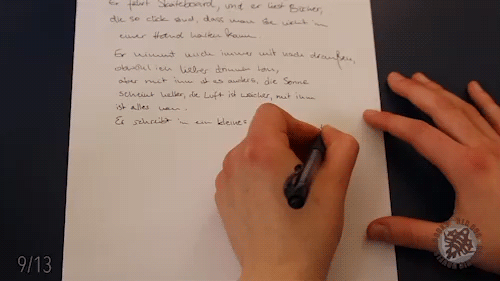 Er fährt Skateboard, und er liest Bücher,
die so dick sind, dass man sie nicht in
einer Hand halten kann.
Er nimmt mich immer mit nach draußen,
obwohl ich lieber drinnen bin,
aber mit ihm ist es anders, die Sonne
scheint heller, die Luft ist weicher, mit ihm
ist alles neu.
Er schreibt in ein kleines
9/13